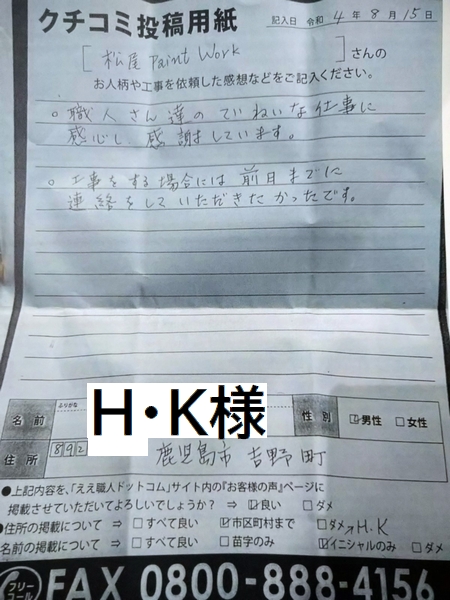 クチコミ投稿用紙
記入日 令和 4 年 8 月 15 日
[松尾 Paint Work]さんの
お人柄や工事を依頼した感想などをご記入ください。
○職人さん達のていねいな仕事に
感心し、感謝しています。
○工事をする場合には前日までに
連絡をしていただきたかったです。
ふりがな
名前 H・K様 性別 ☑男性 □女性
住所 892 鹿児島市 吉野町
●上記内容を、「ええ職人ドットコム」サイト内の『お客様の声』ページに
掲載させていただいてよろしいでしょうか? ⇒ ☑良い □ダメ
●住所の掲載について ⇒ □すべて良い ☑市区町村まで □ダメ
↗H.K
名前の掲載について ⇒ □すべて良い □苗字のみ ☑イニシャルのみ □ダメ
フリーコール FAX 0800-888-4156